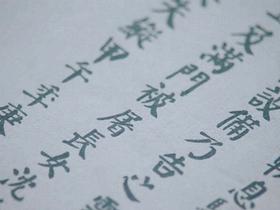 息
設備乃告心
又滿門被屠長女沈
縱甲午年庚